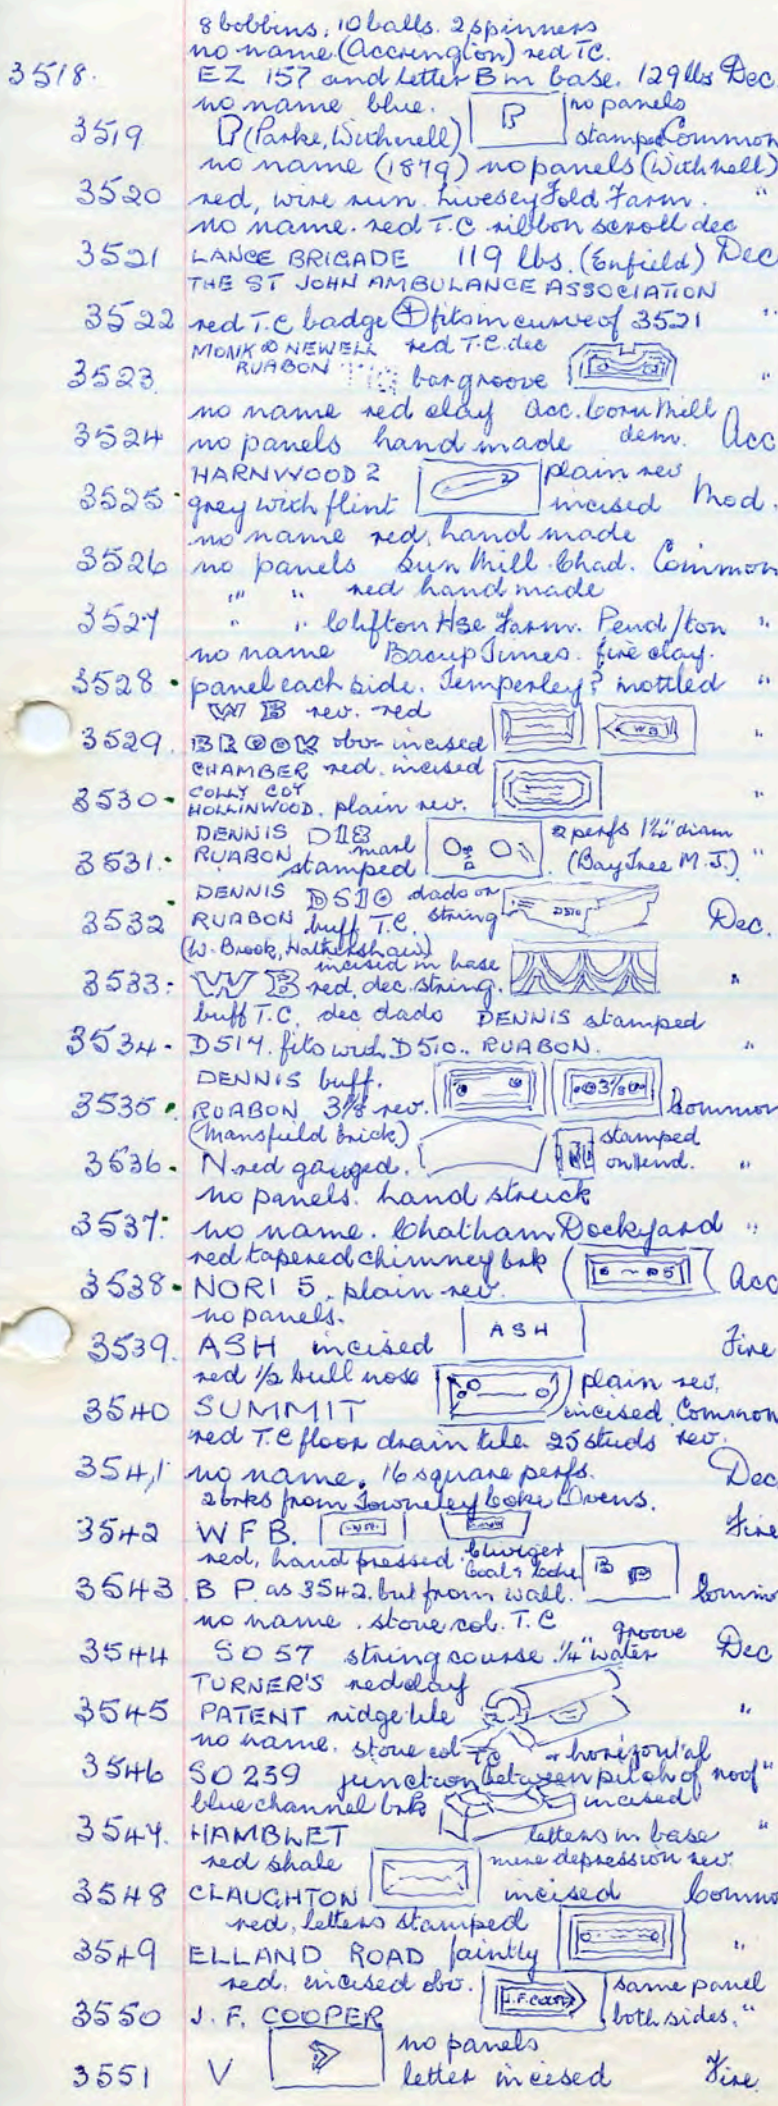 8 bobbins, 10 balls. 2 spinners
no name (Accrington) red TC.
3518. EZ 157 and letter B in base. 129 lbs Dec.
no name blue. B no panels
3519 B (Parke, Withnell) stamped Common
no name (1879) no panels (Withnell)
3520 red, wire run. Livesey Fold Farm. "
no name. red T.C ribbon scroll dec
3521 LANCE BRIGADE 119 lbs. (Enfield) Dec
THE ST JOHN AMBULANCE ASSOCIATION
3522 red T.C badge fits in curve of 3521 "
MONK & NEWELL red T.C. dec
3523 RUABON bar groove "
no name red clay Acc. Corn Mill
3524 no panels hand made dem. Acc
HARNWOOD 2 plain rev
3525 grey with flint 2 incised Mod.
no name red, hand made
3526 no panels Sun Mill. Chad. Common
" " red hand made
3527 " " Clifton Hse Farm. Pend/ton "
no name Bacup Times. fire clay.
3528 panel each side. Temperley? mottled "
W B rev. red
3529. BROOK obv. incised W B "
CHAMBER red. incised
3530 COLLY COY "
HOLLINWOOD. plain rev.
DENNIS D18 2 perfs 1¼" diam
3531. RUABON marl stamped (Bay Tree M.J.) "
DENNIS D510 dado or
3532 RUABON buff T.C. string D510 Dec.
(W. Brook, Hathershaw) incised in base
3533 W B red, dec. string. "
buff T.C, dec dado DENNIS stamped
3534 D517. fits with D510.. RUABON. "
DENNIS buff.
3535 RUABON 3⅛ rev. 3⅛ Common
(Mansfield brick) stamped
3536 N. red gauged. N on end. "
no panels. hand struck
3537 no name. Chatham Dockyard "
red tapered chimney brk
3538 NORI 5. plain rev. 5 Acc
no panels.
3539. ASH incised ASH Fire
red ½ bull nose plain rev.
3540 SUMMIT incised Common
red T.C floor drain tile 25 studs rev.
3541 no name. 16 square perfs. Dec
2 brks from Towneley Coke Ovens.
3542 W F B. Fire
red, hand pressed. Cliviger Coal & Coke B P
3543 B P. as 3542. but from wall. Commo
no name. stone col. T.C
3544 SO 57 string course. ¼" water groove Dec
TURNER'S red clay
3545 PATENT ridge tile "
no name. stone col TC + horizontal
3546 SO 239 junction between pitch of roof "
blue channel brk incised
3547. HAMBLET letters in base "
red shale mere depression rev.
3548 CLAUGHTON incised Commo
red, letters stamped
3549 ELLAND ROAD faintly "
red, incised obv. J.F. COOPER same panel
3550 J. F. COOPER both sides. "
no panels
3551 V V letter incised Fire